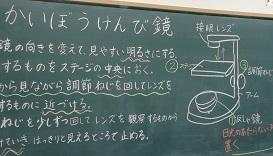 かいぼうけんび鏡
鏡の向きを変えて、見やすい明るさにする
するものをステージの中央におく。
から見ながら調節ねじを回してレンズを
するものに近づける。
ねじを少しずつ回してレンズを観察するものから
ていき はっきりと見えるところで止める。
接眼レンズ
②ステージ
③調節ねじ
アーム
①反しゃ鏡
日光のあたらない
置く